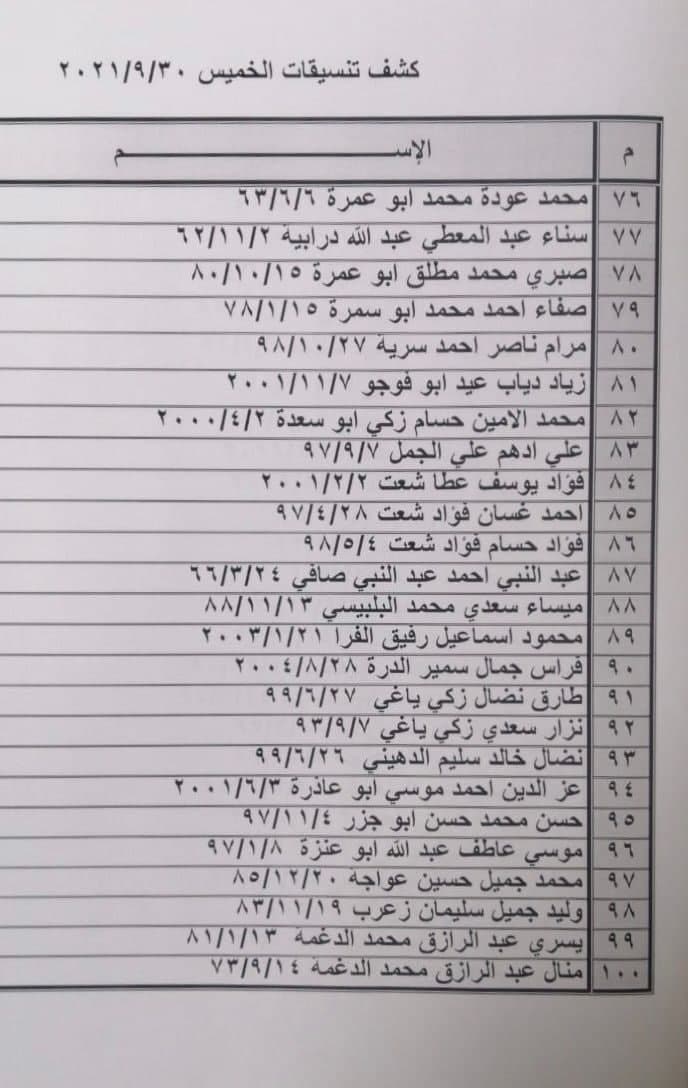 كشف تنسيقات الخميس ٢٠٢١/٩/٣٠
م الإســـــــــــــــــــــــــــــــم
٧٦ محمد عودة محمد ابو عمرة ٦٣/٦/٦
٧٧ سناء عبد المعطي عبد الله درابية ٦٢/١١/٢
٧٨ صبري محمد مطلق ابو عمرة ٨٠/١٠/١٥
٧٩ صفاء احمد محمد ابو سمرة ٧٨/١/١٥
٨٠ مرام ناصر احمد سرية ٩٨/١٠/٢٧
٨١ زياد دياب عيد ابو فوجو ٢٠٠١/١١/٧
٨٢ محمد الامين حسام زكي ابو سعدة ٢٠٠٠/٤/٢
٨٣ علي ادهم علي الجمل ٩٧/٩/٧
٨٤ فؤاد يوسف عطا شعت ٢٠٠١/٢/٢
٨٥ احمد غسان فؤاد شعت ٩٧/٤/٢٨
٨٦ فؤاد حسام فؤاد شعت ٩٨/٥/٤
٨٧ عبد النبي احمد عبد النبي صافي ٦٦/٣/٢٤
٨٨ ميساء سعدي محمد البلبيسي ٨٨/١١/١٣
٨٩ محمود اسماعيل رفيق الفرا ٢٠٠٣/١/٢١
٩٠ فراس جمال سمير الدرة ٢٠٠٤/٨/٢٨
٩١ طارق نضال زكي ياغي ٩٩/٦/٢٧
٩٢ نزار سعدي زكي ياغي ٩٣/٩/٧
٩٣ نضال خالد سليم الدهيني ٩٩/٦/٢٦
٩٤ عز الدين احمد موسي ابو عاذرة ٢٠٠١/٦/٣
٩٥ حسن محمد حسن ابو جزر ٩٧/١١/٤
٩٦ موسي عاطف عبد الله ابو عنزة ٩٧/١/٨
٩٧ محمد جميل حسين عواجة ٨٥/١٢/٢٠
٩٨ وليد جميل سليمان زعرب ٨٣/١١/١٩
٩٩ يسري عبد الرازق محمد الدغمة ٨١/١/١٣
١٠٠ منال عبد الرازق محمد الدغمة ٧٣/٩/١٤